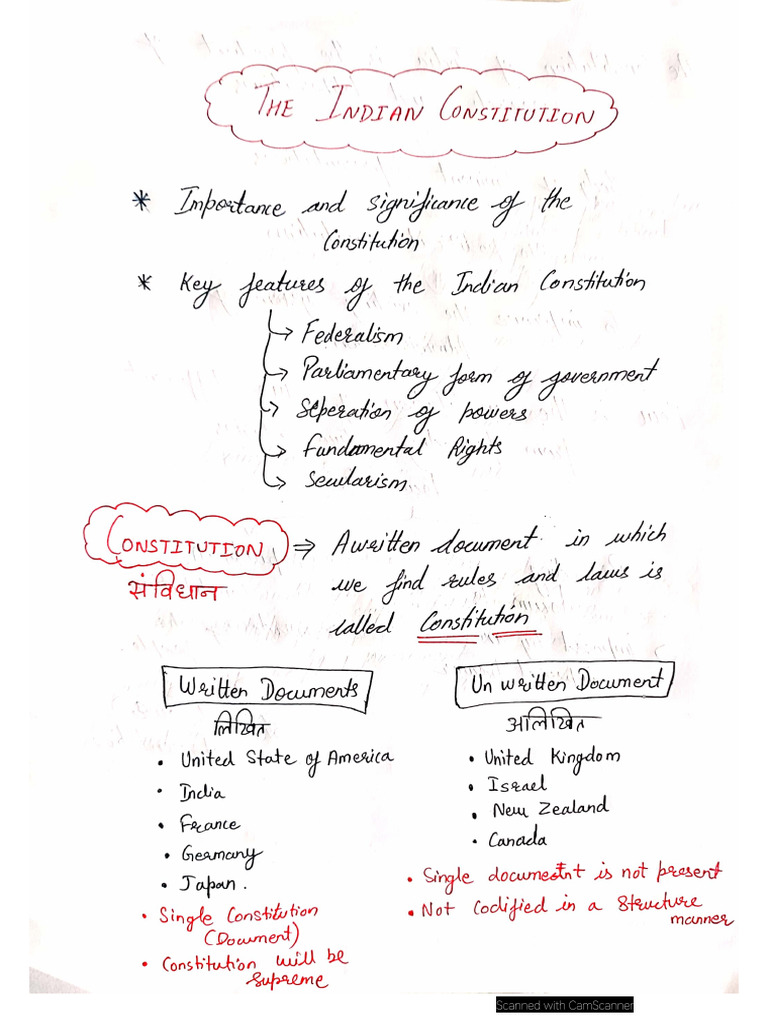 THE INDIAN CONSTITUTION
* Importance and significance of the
Constitution
* Key features of the Indian Constitution
→ Federalism
→ Parliamentary form of government
→ Seperation of powers
→ Fundamental Rights
→ Secularism
CONSTITUTION ⇒ A written document in which
संविधान we find rules and laws is
called Constitution
Written Documents
लिखित
• United State of America
• India
• France
• Germany
• Japan.
• Single Constitution
(Document)
• Constitution will be
supreme
Un written Document
अलिखित
• United Kingdom
• Israel
• New Zealand
• Canada
• Single document is not present
• Not Codified in a structure
manner
Scanned with CamScanner